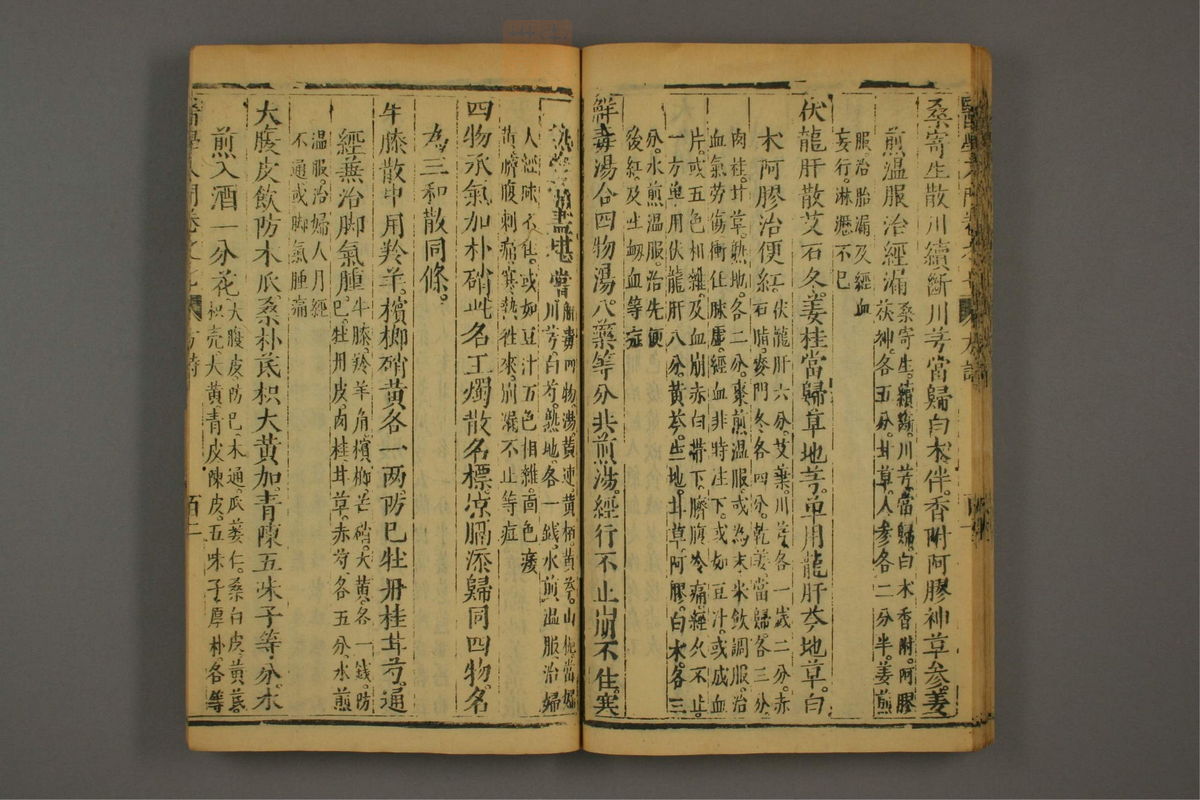 桑寄生散川續斷川芎當歸白朮伴。香附阿膠神草參。姜
煎溫服治經漏
桑寄生。續斷。川芎。當歸。白朮。香附。阿膠
茯神。各五分。甘草。人參。各二分半。姜煎
服治胎漏及經血
妄行。淋瀝不已
伏龍肝散艾石冬。姜桂當歸草地芎。單用龍肝芩地草。白
朮阿膠治便紅。
伏龍肝六分。艾葉。川芎。各一錢二分。赤
石脂。麥門冬。各四分。乾姜。當歸。各三分
肉桂。甘草。熟地。各二分。棗煎溫服或為末米飲調服。治
血氣勞傷衝任脉虛。經血非時注下。或如豆汁。或成血
片。或五色相雜。及血崩赤白帶下。臍腹冷痛。經久不止。
一方單用伏龍肝八分。黃芩。生地。甘草。阿膠。白朮。各三
分。水煎溫服。治先便
後紅。及生衂血等症
觧毒湯合四物湯。八藥等分共煎湯。經行不止崩不住。寒
盡堪嘗
物湯。黃連。黃栢。黃芩。山梔。當歸
川芎。白芍。熟地各一錢。水煎溫服治婦
人經脉不住。或如豆汁五色相雜。面色痿
黃。臍腹刺痛。寒熱徃來。崩漏不止等症
四物承氣加朴硝。此名玉燭散名標。凉膈添歸同四物。名
為三和散同條。
牛膝散中用羚羊。檳榔硝黃各一兩。防巳牡丹桂茸芍。通
經蕪治脚氣腫。
牛膝。羚羊角。檳榔。芒硝。大黃。各一錢。防
巳。牡丹皮。肉桂。甘草。赤芍。各五分。水煎
溫服。治婦人月經
不通或脚氣腫痛
大腹皮飲防木瓜。桑朴芪枳大黃加。青陳五味子等分。水
煎入酒一分花
大腹皮。防巳。木通。瓜蔞仁。桑白皮。黃芪。
枳壳。大黃。青皮。陳皮。五味子。厚朴。各等